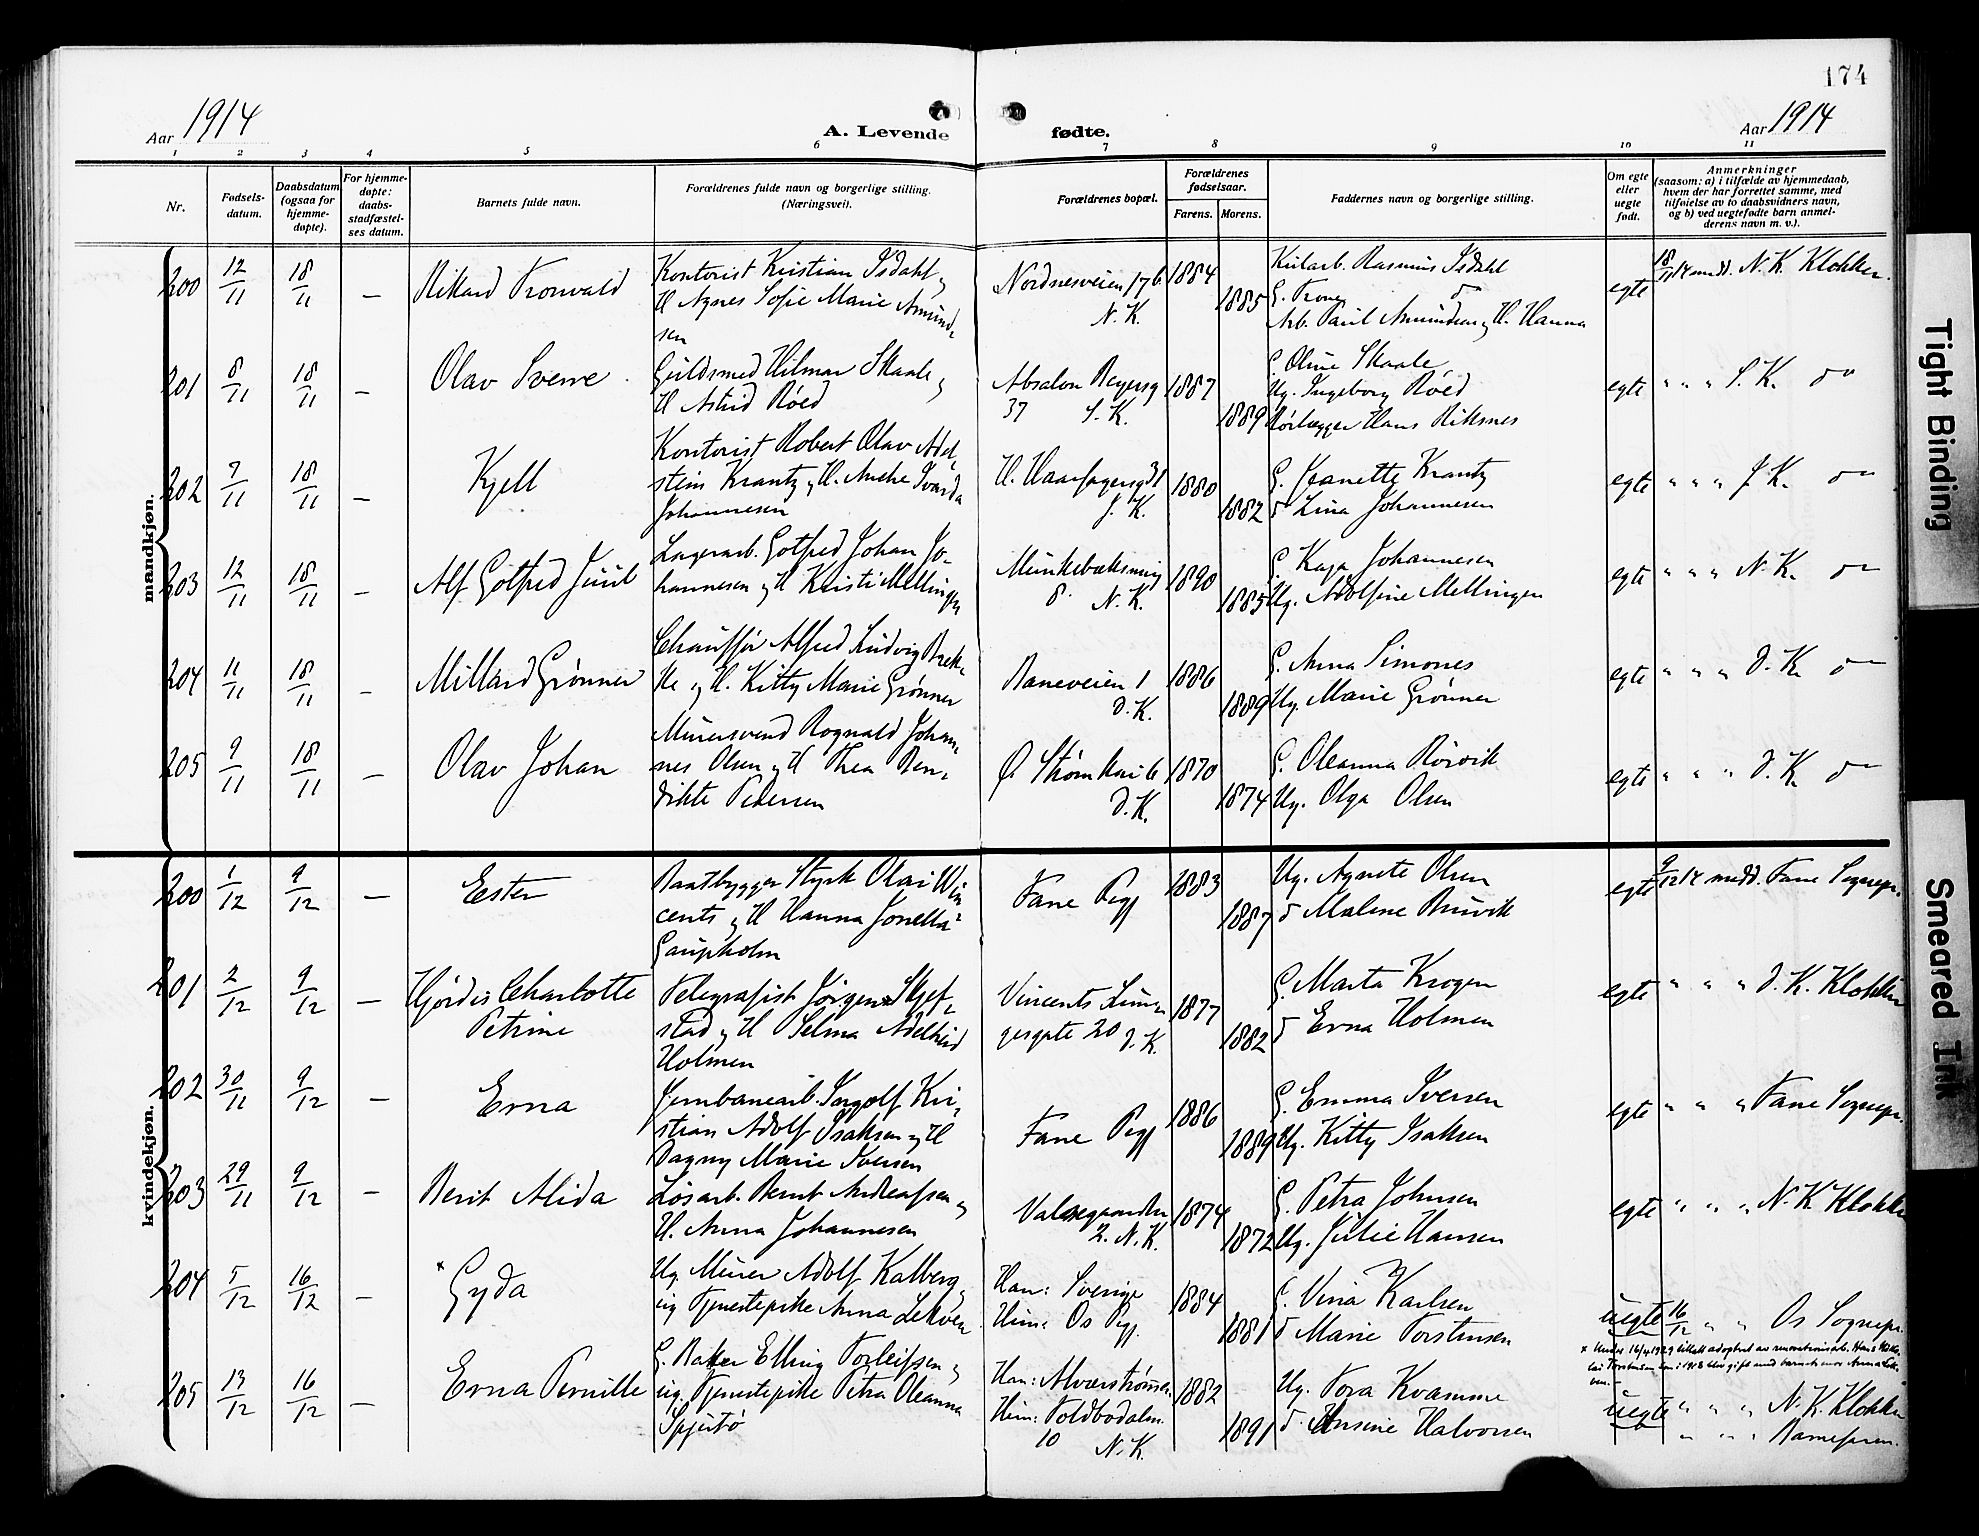 174
Aar 1914
A. Levende fødte.
Aar 1914
1 2 3 4 5 6 7 8 9 10 11
Nr.
Fødsels-
datum.
Daabsdatum
(ogsaa for
hjemme-
døpte).
For hjemme-
døpte:
daabs-
stadfæstel-
ses datum.
Barnets fulde navn.
Forældrenes fulde navn og borgerlige stilling.
(Næringsvei).
Forældrenes bopæl.
Forældrenes
fødselsaar.
Farens. Morens.
Faddernes navn og borgerlige stilling.
Om egte
eller
uegte
født.
Anmerkninger
(saasom: a) i tilfælde av hjemmedaab,
hvem der har forrettet samme, med
tilføielse av to daabsvidners navn,
og b) ved uegtefødte barn anmel-
derens navn m. v.).
mandkjøn.
200 12/11 18/11 — Rikard Tronvald
Kontorist Kristian Isdahl og
H Agnes Sofie Marie Amund-
sen
Nordnesveien 17b
N. K.
1884
1885
Rasmus Isdahl
Arb. Paul Amundsen og H. Hanna
egte
18/11 14 medd. N. K. Klokker.
201 8/11 18/11 — Olav Sverre
Guldsmed Hilmar Skaale og
H Astrid Røed
Absalon Beyersg
37 S. K.
1887
1889
G. Oline Skaale
Ug. Ingeborg Røed
Rørlægger Hans Riksnes
egte
" " " S. K. do
202 7/11 18/11 — Kjell
Kontorist Robert Olav Adel-
stein Krantz og H.
Johannesen
H. Haarfagersg 31
J. K.
1880
1882
G. Jeanette Krantz
d Lina Johannesen
egte
" " " J. K. do
203 12/11 18/11 — Alf Gotfred Juul
Lagerarb. Gotfred Johan Jo-
hannesen og H Kristi Mellingen
Munkebæksmug
8. N. K.
1890
1885
G. Kaja Johannesen
Ug. Adolfine Mellingen
egte
" " " N. K. do
204 11/11 18/11 — Millard Grønner
Chauffør Alfred Ludvig Brek-
ke og H. Kitty Marie Grønner
Baneveien 1
d. K.
1886
1889
G. Anna Simones
Ug. Marie Grønner
egte
" " " d. K. do
205 9/11 18/11 — Olav Johan
Murersvend Rognald Johan-
nes Olsen og H Thea Ben-
dikte Pedersen
Ø. Strømkai 6
d. K.
1870
1874
G. Oleanna Rørvik
Ug. Olga Olsen
egte
" " " d. K. do
kvindekjøn.
200 1/12 9/12 — Ester
Baatbygger Styrk Olai Win
cents og H Hanna Jonella
Gaupholm
Fane Pgj
1883
1887
Ug. Agnete Olsen
d Malene Bruvik
egte
9/12 14 medd. Fane Sognepr.
201 2/12 9/12 — Hjørdis Charlotte
Petrine
Telegrafist Jørgen Skjef-
stad og H Selma Adelheid
Holmen
Vincents Lun-
gesgate 20 d. K.
1877
1882
G. Marta Krogen
d Erna Holmen
egte
" " " d. K. Klokker
202 30/11 9/12 — Erna
Jernbanearb. Ingolf Kri-
stian Adolf Isaksen og H
Dagny Marie Iversen
Fane Pgj
1886
1889
G. Emma Iversen
Ug. Kitty Isaksen
egte
" " " Fane Sognepr.
203 29/11 9/12 — Berit Alida
Løsarb. Bernt Andreassen og
H. Anna Johannesen
2. N. K.
1874
1872
G. Petra Johnsen
Ug. Julie Hansen
egte
" " " N. K. Klokker
204 5/12 16/12 — × Gyda
Ug. Murer Adolf Kalberg og
ug Tjenestepike Anna Lekven
Han: Sverige
Hun: Os Pgj.
1884
1881
G. Vina Karlsen
d Marie Torstensen
uegte
16/12 " " Os Sognepr.
205 13/12 16/12 — Erna Pernille
G. Baker Elling Torleifsen og
ug. Tjenestepike Petra Oleanna
Spjutø
Han: Alverstrømmen
Hun: Toldbodalm.
10 N. K.
1882
1891
Ug. Tora Kvamme
d. Ansine Halvorsen
uegte
" " " N. K. Klokker
" " " Barneforen.
Tight Binding
Smeared Ink